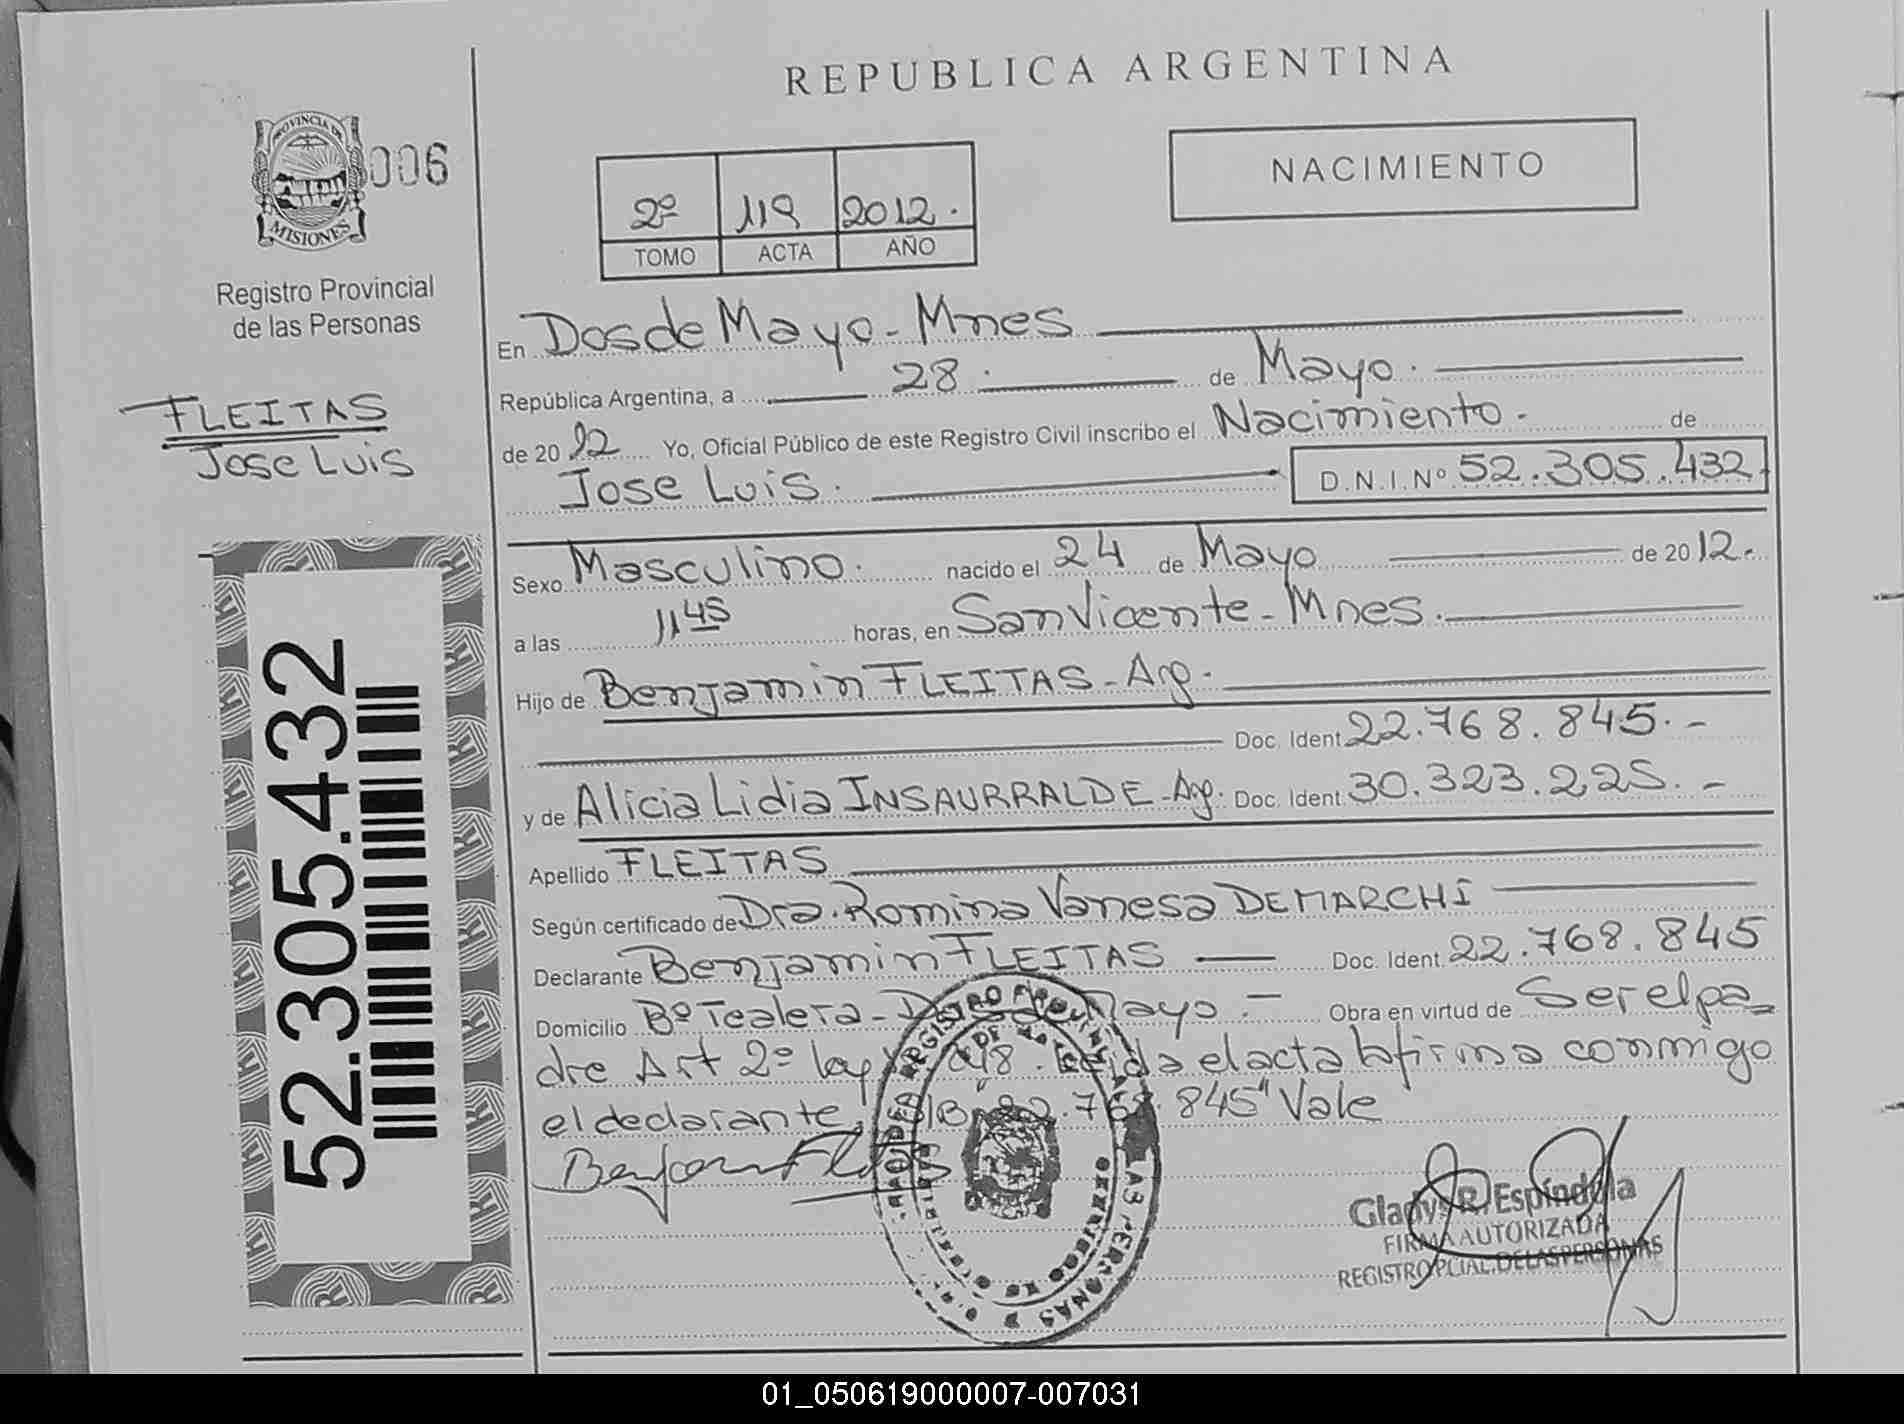 REPUBLICA ARGENTINA
PROVINCIA DE
MISIONES
006
Registro Provincial
de las Personas
FLEITAS
Jose Luis
52.305.432
2º 119 2012.
TOMO ACTA AÑO
NACIMIENTO
En Dos de Mayo - Mnes
República Argentina, a 28. de Mayo.
de 2012 Yo, Oficial Público de este Registro Civil inscribo el Nacimiento. de
Jose Luis. D.N.I. Nº 52.305.432
Sexo Masculino. nacido el 24 de Mayo de 2012.
a las 11 45 horas, en San Vicente - Mnes.
Hijo de Benjamin FLEITAS - Arg.
Doc. Ident 22.768.845.-
y de Alicia Lidia INSAURRALDE - Arg. Doc. Ident. 30.323.225.-
Apellido FLEITAS
Según certificado de Dra. Romina Vanesa DEMARCHI
Declarante Benjamin FLEITAS Doc. Ident. 22.768.845
Domicilio Bº Tealera - Dos de Mayo.- Obra en virtud de Ser el pa-
dre Art 2º ley 18.248. Leida el acta la firma conmigo
el declarante, 22.768.845" Vale
Benjamin Fleitas
REGISTRO PROVINCIAL DE LAS PERSONAS
Gladys R. Espíndola
FIRMA AUTORIZADA
REGISTRO PCIAL. DE LAS PERSONAS
01_050619000007-007031